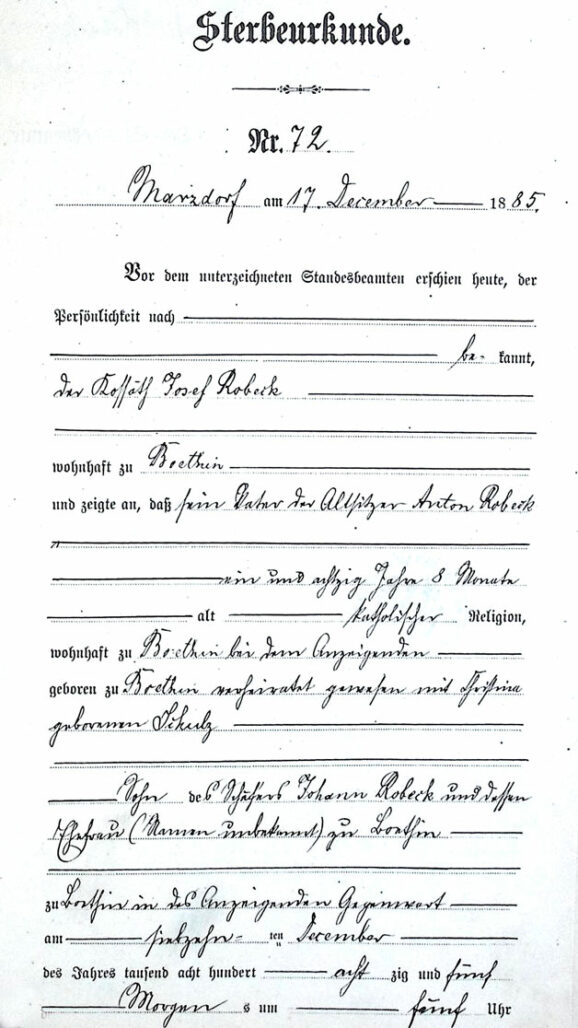 Sterbeurkunde.
Nr. 72.
Marzdorf am 17. December 1885.
Vor dem unterzeichneten Standesbeamten erschien heute, der
Persönlichkeit nach
be- kannt,
der Kossäth Josef Robeck
wohnhaft zu Boethin
und zeigte an, daß sein Vater der Altsitzer Anton Robeck
ein und achtzig Jahre 8 Monate
alt katholischer Religion,
wohnhaft zu Boethin bei dem Anzeigenden
geboren zu Boethin verheiratet gewesen mit Christina
geborenen Schulz
Sohn des Schäfers Johann Robeck und dessen
Ehefrau (Namen unbekannt) zu Boethin
zu Boethin in des Anzeigenden Gegenwart
am siebzehn- ten December
des Jahres tausend acht hundert acht zig und fünf
Morgen s um fünf Uhr